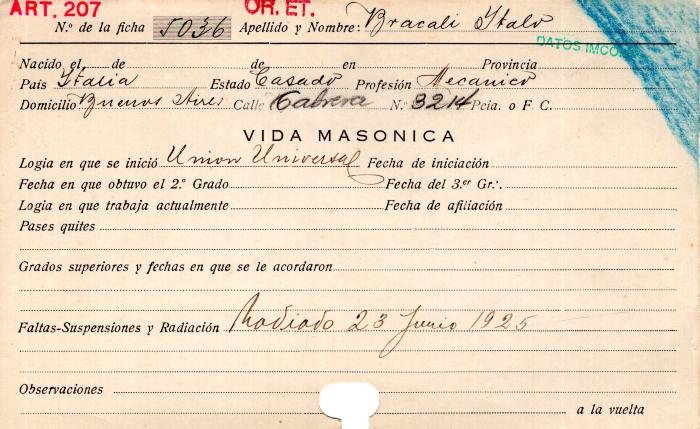 ART. 207 OR. ET.
N.º de la ficha 5036 Apellido y Nombre: Bracali Italo
DATOS IMCO
Nacido el de de en Provincia
País Italia Estado Casado Profesión Mecanico
Domicilio Buenos Aires Calle Cabrera N.º 3214 Pcia. o F. C.
VIDA MASONICA
Logia en que se inició Union Universal Fecha de iniciación
Fecha en que obtuvo el 2.º Grado Fecha del 3.er Gr∴
Logia en que trabaja actualmente Fecha de afiliación
Pases quites
Grados superiores y fechas en que se le acordaron
Faltas-Suspensiones y Radiación Radiado 23 Junio 1925
Observaciones
a la vuelta